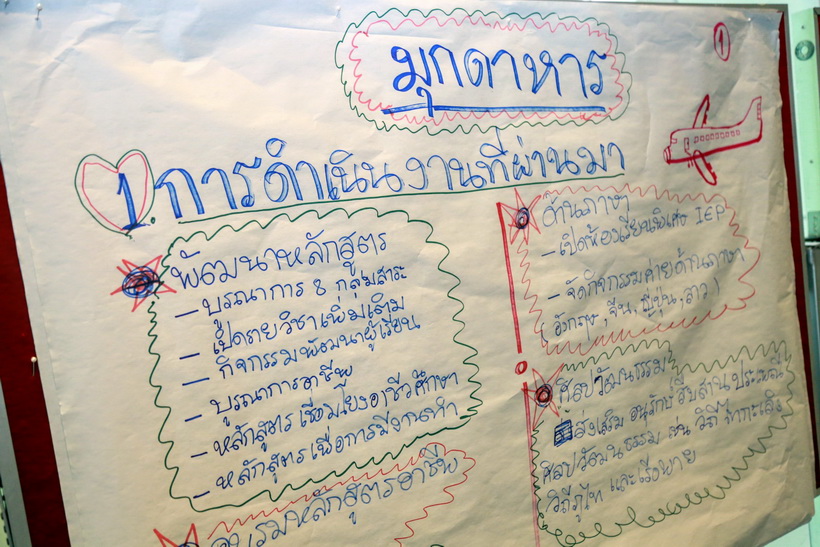 มุกดาหาร
1
1. การดำเนินงานที่ผ่านมา
พัฒนาหลักสูตร
- บูรณาการ 8 กลุ่มสาระ
- เปิดรายวิชาเพิ่มเติม
- กิจกรรมพัฒนาผู้เรียน
- บูรณาการอาชีพ
- หลักสูตรเชื่อมโยงอาชีวศึกษา
- หลักสูตรเพื่อการมีงานทำ
อบรมหลักสูตรอาชีพ
ด้านภาษา
- เปิดห้องเรียนพิเศษ IEP
- จัดกิจกรรมค่ายด้านภาษา
(อังกฤษ, จีน, ญี่ปุ่น, ลาว)
ศิลปวัฒนธรรม
ส่งเสริม อนุรักษ์ สืบสานประเพณี
ศิลปวัฒนธรรม เช่น วิถีไทกะเลิง
วิถีภูไท และเรือพาย